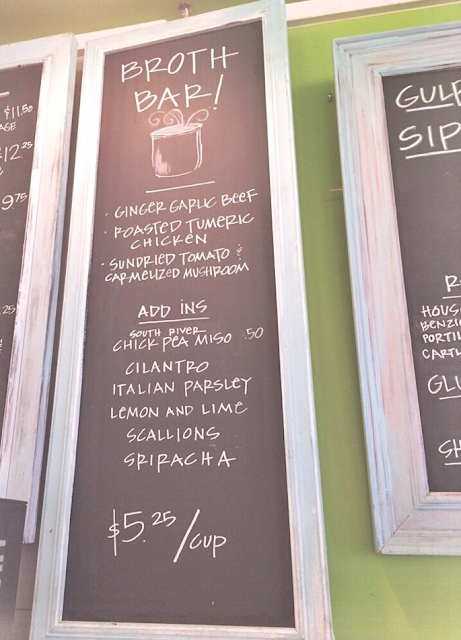 $11.50
AGE
$12.25
9.75
.25
BROTH
BAR!
· GINGER GARLIC BEEF
· ROASTED TUMERIC
CHICKEN
· SUNDRIED TOMATO &
CARMELIZED MUSHROOM
ADD INS
SOUTH RIVER
CHICK PEA MISO .50
CILANTRO
ITALIAN PARSLEY
LEMON AND LIME
SCALLIONS
SRIRACHA
$5.25/CUP
GULP
SIP
R
HOUS
BENZI
PORTIL
CARTL
GLU
SH